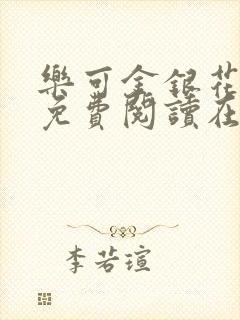 樂可金銀花
免費閱讀在
李若瑄